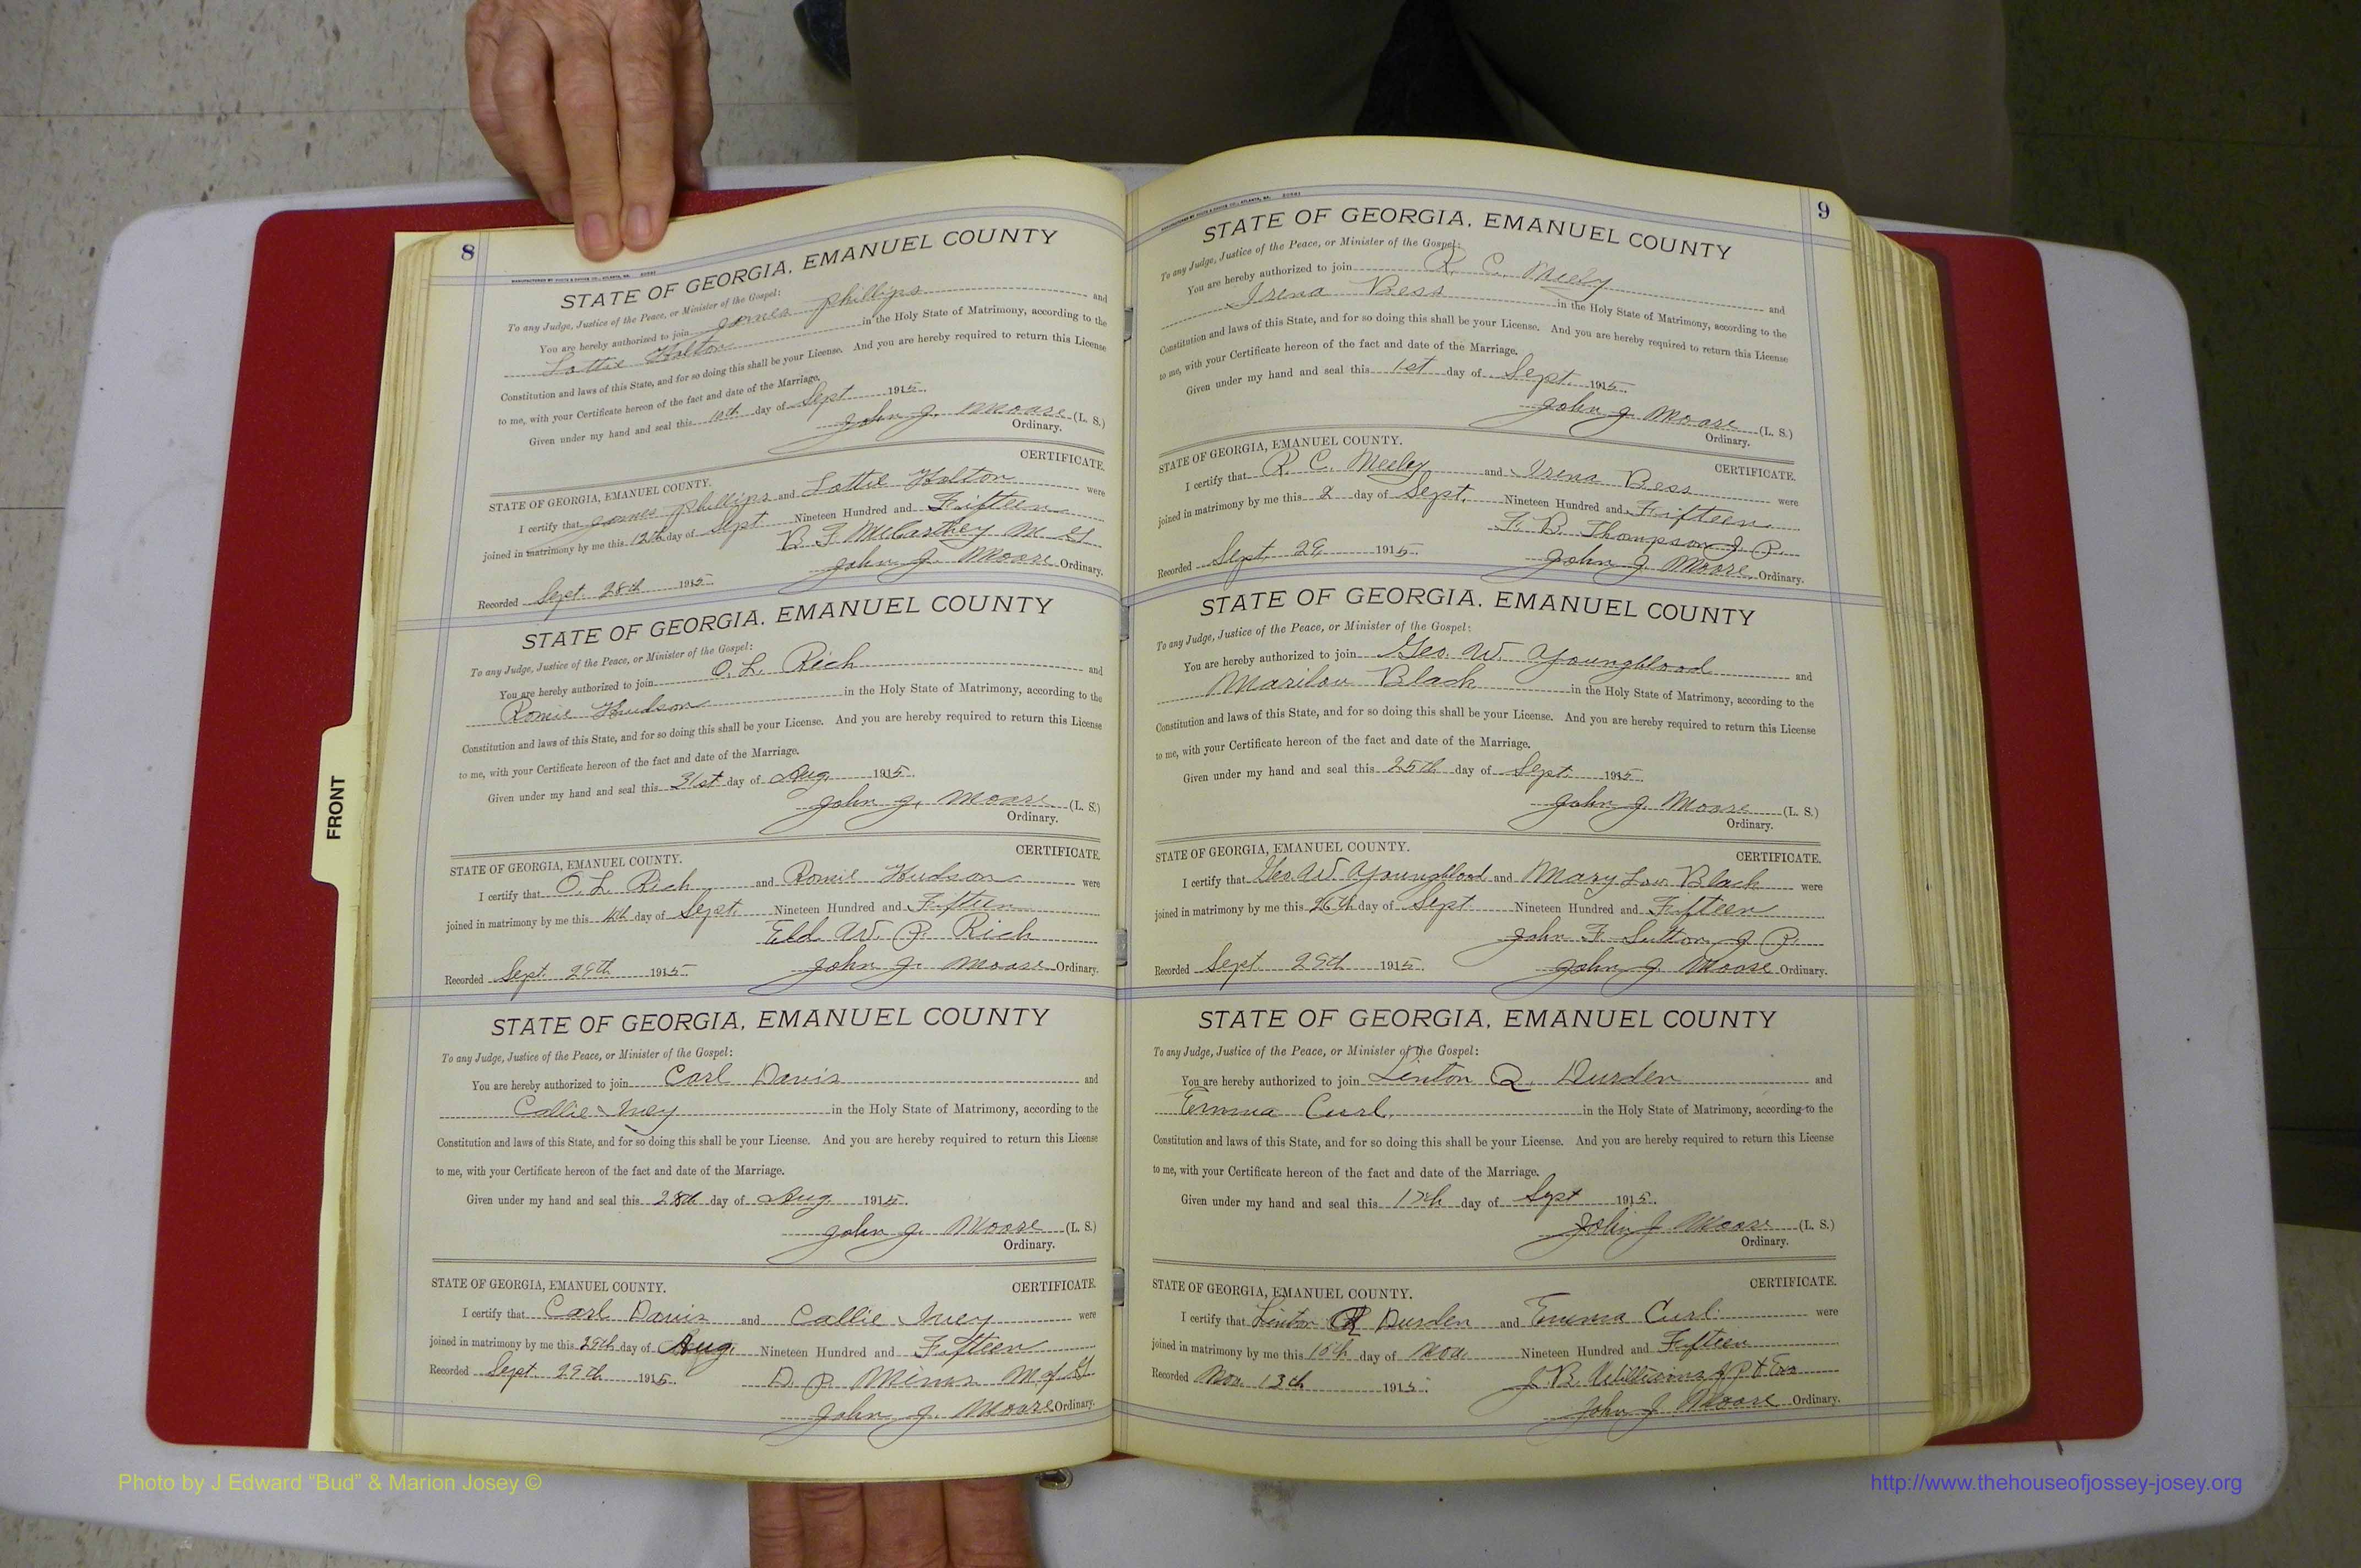 8
STATE OF GEORGIA, EMANUEL COUNTY
To any Judge, Justice of the Peace, or Minister of the Gospel:
You are hereby authorized to join James Phillips and
Lottie Holton in the Holy State of Matrimony, according to the
Constitution and laws of this State, and for so doing this shall be your License. And you are hereby required to return this License
to me, with your Certificate hereon of the fact and date of the Marriage.
Given under my hand and seal this 10th day of Sept 1915.
John J. Moore (L. S.)
Ordinary.
CERTIFICATE.
STATE OF GEORGIA, EMANUEL COUNTY.
I certify that James Phillips and Lottie Holton were
joined in matrimony by me this 12th day of Sept Nineteen Hundred and Fifteen
B F McCarthey M G
Recorded Sept. 28th 1915. John J. Moore Ordinary.
STATE OF GEORGIA, EMANUEL COUNTY
To any Judge, Justice of the Peace, or Minister of the Gospel:
You are hereby authorized to join O. L. Rich and
Romie Hudson in the Holy State of Matrimony, according to the
Constitution and laws of this State, and for so doing this shall be your License. And you are hereby required to return this License
to me, with your Certificate hereon of the fact and date of the Marriage.
Given under my hand and seal this 31st day of Aug. 1915.
John J. Moore (L. S.)
Ordinary.
CERTIFICATE.
STATE OF GEORGIA, EMANUEL COUNTY.
I certify that O. L. Rich and Romie Hudson were
joined in matrimony by me this 4th day of Sept. Nineteen Hundred and Fifteen
Eld. W. P. Rich
Recorded Sept. 29th 1915 John J. Moore Ordinary.
STATE OF GEORGIA, EMANUEL COUNTY
To any Judge, Justice of the Peace, or Minister of the Gospel:
You are hereby authorized to join Carl Davis and
Callie Ivey in the Holy State of Matrimony, according to the
Constitution and laws of this State, and for so doing this shall be your License. And you are hereby required to return this License
to me, with your Certificate hereon of the fact and date of the Marriage.
Given under my hand and seal this 28th day of Aug. 1915.
John J. Moore (L. S.)
Ordinary.
STATE OF GEORGIA, EMANUEL COUNTY. CERTIFICATE.
I certify that Carl Davis and Callie Ivey were
joined in matrimony by me this 29th day of Aug. Nineteen Hundred and Fifteen
Recorded Sept. 29th 1915. D. P. Mims M of G.
John J. Moore Ordinary.
9
STATE OF GEORGIA, EMANUEL COUNTY
To any Judge, Justice of the Peace, or Minister of the Gospel:
You are hereby authorized to join R. C. Neely and
Irena Bess in the Holy State of Matrimony, according to the
Constitution and laws of this State, and for so doing this shall be your License. And you are hereby required to return this License
to me, with your Certificate hereon of the fact and date of the Marriage.
Given under my hand and seal this 1st day of Sept. 1915.
John J Moore (L. S.)
Ordinary.
STATE OF GEORGIA, EMANUEL COUNTY. CERTIFICATE.
I certify that R. C. Neeley and Irena Bess were
joined in matrimony by me this 2 day of Sept. Nineteen Hundred and Fifteen
F. B. Thompson J. P.
Recorded Sept. 29, 1915. John J. Moore, Ordinary.
STATE OF GEORGIA, EMANUEL COUNTY
To any Judge, Justice of the Peace, or Minister of the Gospel:
You are hereby authorized to join Geo. W. Youngblood and
Marilou Black in the Holy State of Matrimony, according to the
Constitution and laws of this State, and for so doing this shall be your License. And you are hereby required to return this License
to me, with your Certificate hereon of the fact and date of the Marriage.
Given under my hand and seal this 25th day of Sept. 1915.
John J. Moore (L. S.)
Ordinary.
STATE OF GEORGIA, EMANUEL COUNTY. CERTIFICATE.
I certify that Geo. W Youngblood and Mary Lou Black were
joined in matrimony by me this 26th day of Sept. Nineteen Hundred and Fifteen
John F. Sutton J P.
Recorded Sept 29th 1915. John J. Moore Ordinary.
STATE OF GEORGIA, EMANUEL COUNTY
To any Judge, Justice of the Peace, or Minister of the Gospel:
You are hereby authorized to join Linton Q. Durden and
Emma Curl. in the Holy State of Matrimony, according to the
Constitution and laws of this State, and for so doing this shall be your License. And you are hereby required to return this License
to me, with your Certificate hereon of the fact and date of the Marriage.
Given under my hand and seal this day of Sept 1915.
John J Moore (L. S.)
Ordinary.
STATE OF GEORGIA, EMANUEL COUNTY. CERTIFICATE.
I certify that Linton Durden and Emma Curl. were
joined in matrimony by me this 10th day of Nov Nineteen Hundred and Fifteen
Recorded Nov. 13th 1915. J. B. Williams J P
John J Moore Ordinary.
FRONT
Photo by J Edward “Bud” & Marion Josey ©
http://www.thehouseofjossey-josey.org